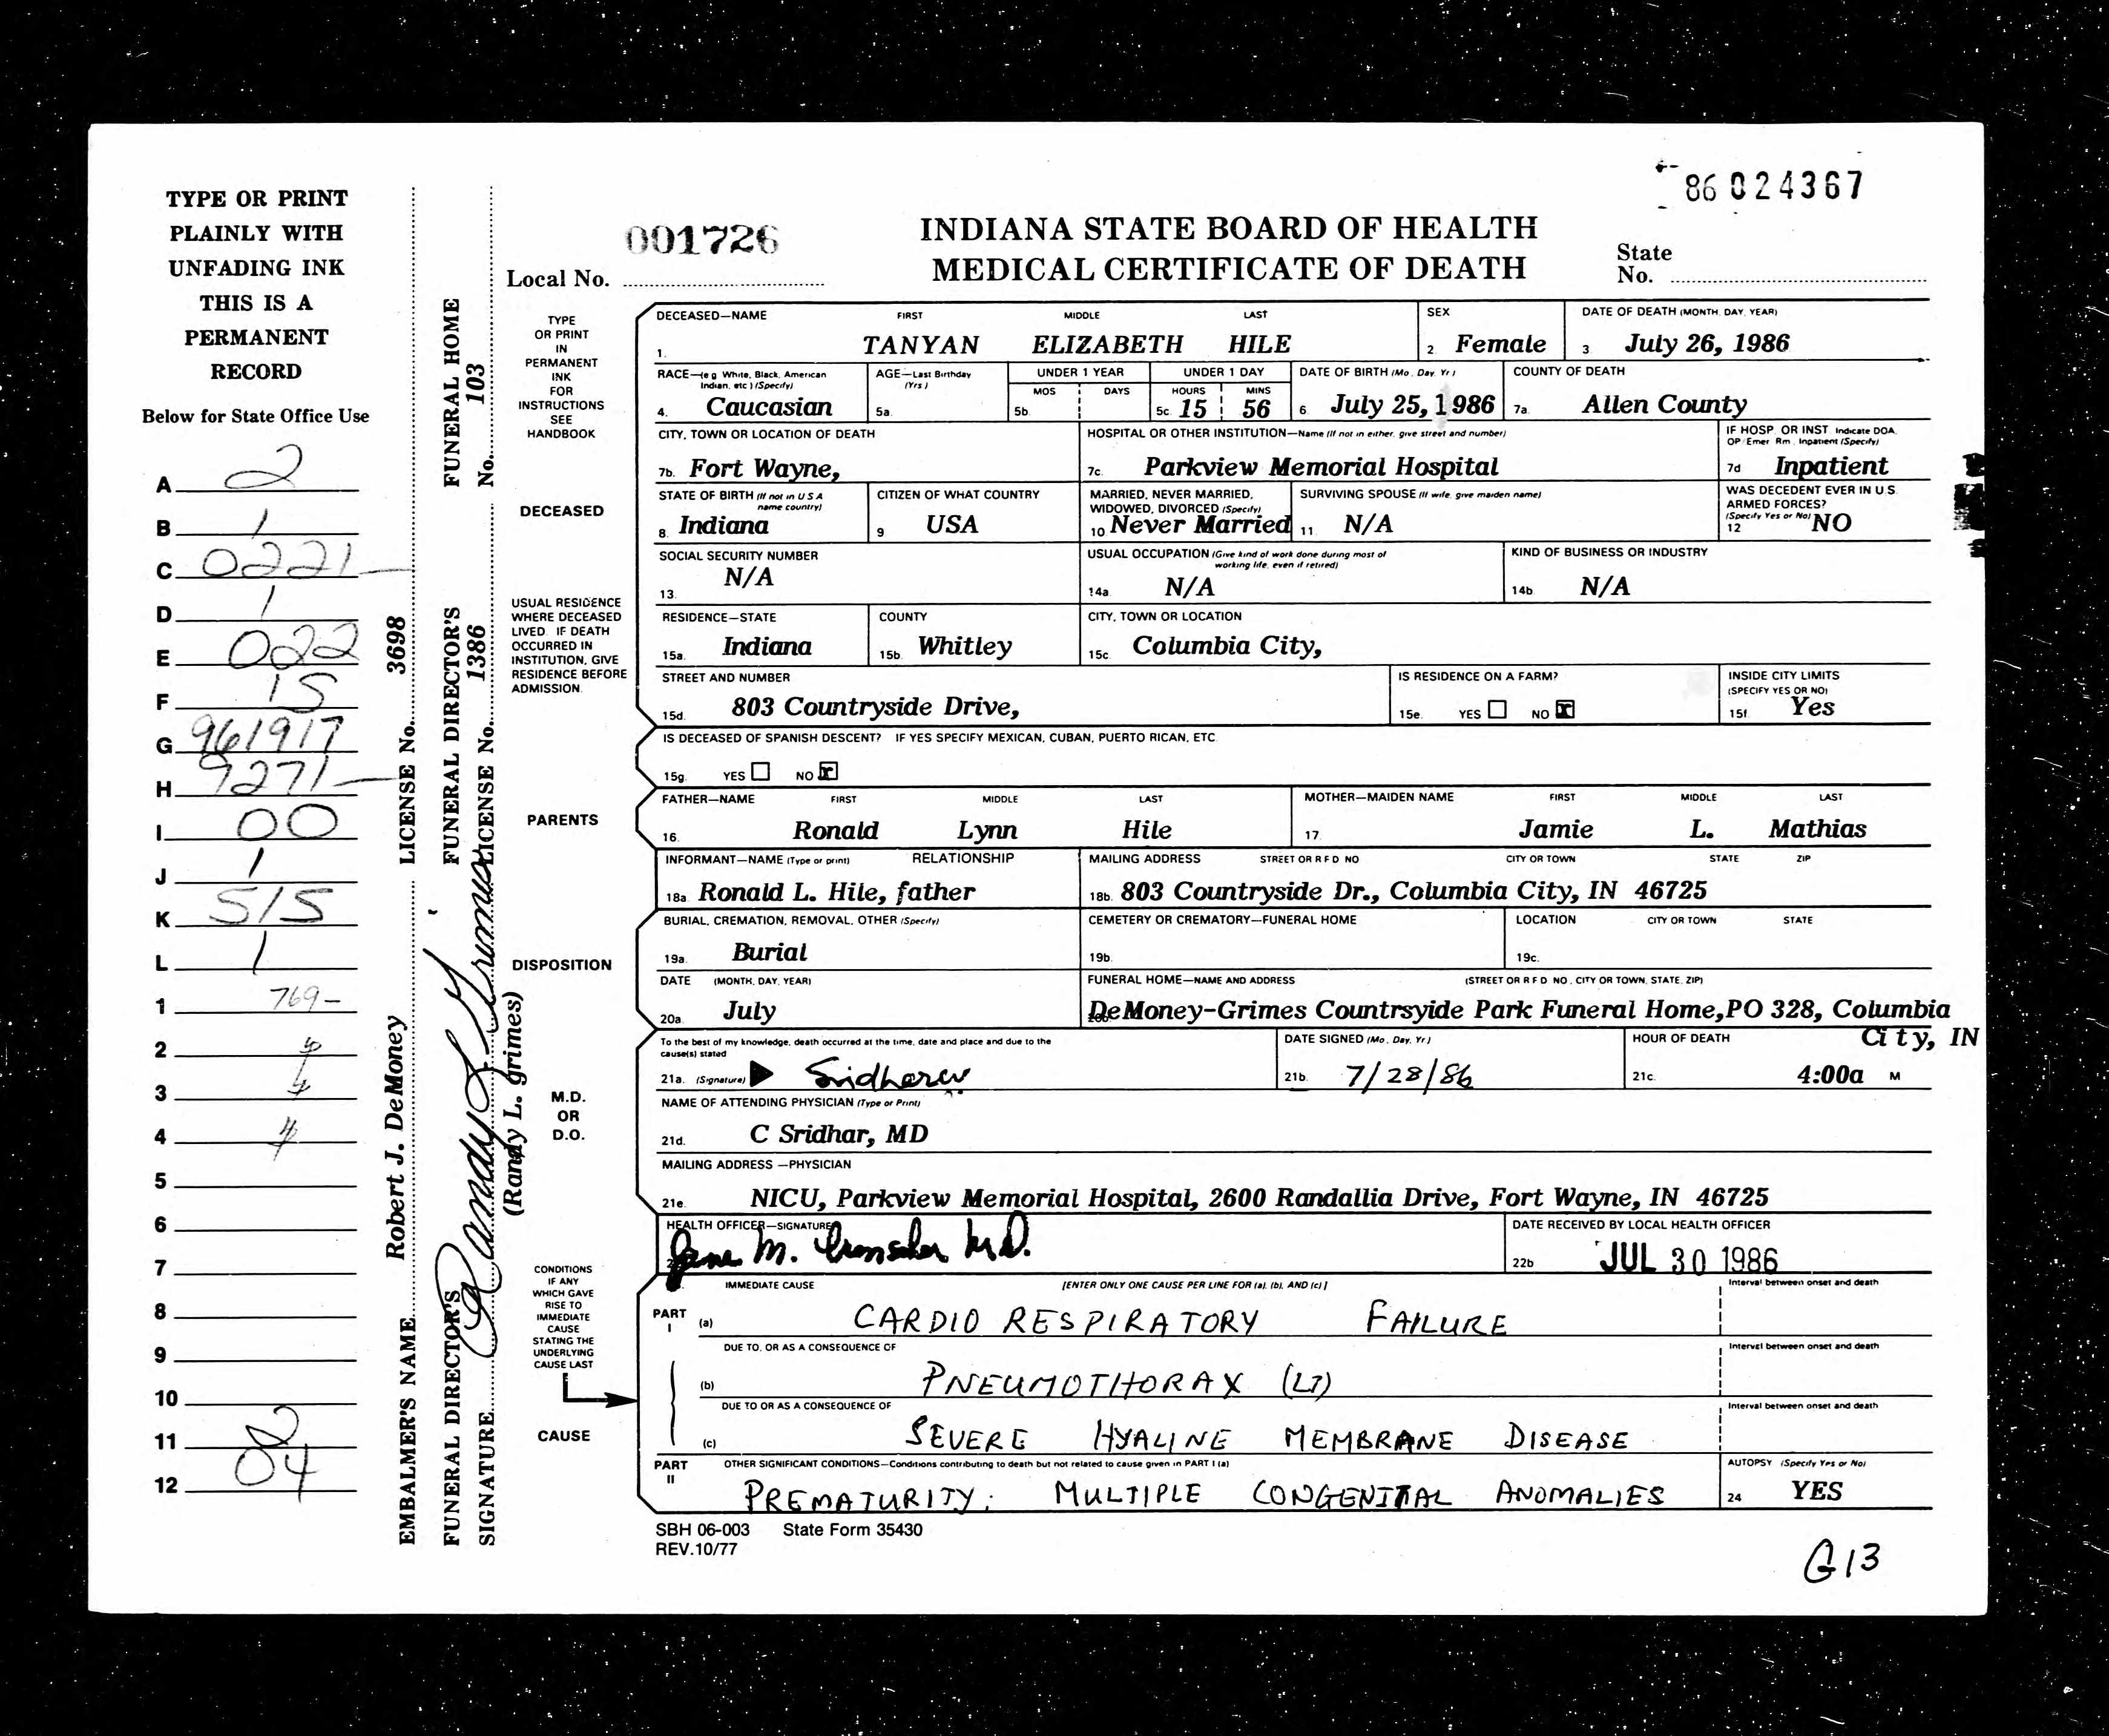 86 024367
TYPE OR PRINT
PLAINLY WITH
UNFADING INK
THIS IS A
PERMANENT
RECORD
Below for State Office Use
A 2
B 1
C 0221
D 1
E 022
F 15
G 961917
H 9271
I 00
J 1
K 515
L 1
1 769-
2
3
4
5
6
7
8
9
10
11
12 04
EMBALMER'S NAME Robert J. DeMoney LICENSE No. 3698
FUNERAL DIRECTOR'S SIGNATURE (Randy L. grimes) FUNERAL DIRECTOR'S LICENSE No. 1386 FUNERAL HOME No. 103
001726
Local No.
INDIANA STATE BOARD OF HEALTH
MEDICAL CERTIFICATE OF DEATH
State
No.
TYPE
OR PRINT
IN
PERMANENT
INK
FOR
INSTRUCTIONS
SEE
HANDBOOK
DECEASED—NAME FIRST MIDDLE LAST SEX DATE OF DEATH (MONTH, DAY, YEAR)
1. TANYAN ELIZABETH HILE 2. Female 3. July 26, 1986
RACE—(e g White, Black, American Indian, etc ) (Specify) AGE—Last Birthday (Yrs ) UNDER 1 YEAR UNDER 1 DAY DATE OF BIRTH (Mo. Day. Yr ) COUNTY OF DEATH
MOS DAYS HOURS MINS
4. Caucasian 5a. 5b. 5c. 15 56 6. July 25, 1986 7a. Allen County
CITY, TOWN OR LOCATION OF DEATH HOSPITAL OR OTHER INSTITUTION—Name (If not in either, give street and number) IF HOSP. OR INST. Indicate DOA, OP/Emer. Rm., Inpatient (Specify)
7b. Fort Wayne, 7c. Parkview Memorial Hospital 7d Inpatient
DECEASED
STATE OF BIRTH (If not in U S A name country) CITIZEN OF WHAT COUNTRY MARRIED, NEVER MARRIED, WIDOWED, DIVORCED (Specify) SURVIVING SPOUSE (If wife, give maiden name) WAS DECEDENT EVER IN U.S. ARMED FORCES? (Specify Yes or No)
8. Indiana 9 USA 10 Never Married 11. N/A 12 NO
SOCIAL SECURITY NUMBER USUAL OCCUPATION (Give kind of work done during most of working life, even if retired) KIND OF BUSINESS OR INDUSTRY
13. N/A 14a N/A 14b. N/A
USUAL RESIDENCE
WHERE DECEASED
LIVED. IF DEATH
OCCURRED IN
INSTITUTION, GIVE
RESIDENCE BEFORE
ADMISSION.
RESIDENCE—STATE COUNTY CITY, TOWN OR LOCATION
15a. Indiana 15b. Whitley 15c. Columbia City,
STREET AND NUMBER IS RESIDENCE ON A FARM? INSIDE CITY LIMITS (SPECIFY YES OR NO)
15d. 803 Countryside Drive, 15e. YES NO 15f. Yes
IS DECEASED OF SPANISH DESCENT? IF YES SPECIFY MEXICAN, CUBAN, PUERTO RICAN, ETC.
15g. YES NO
PARENTS
FATHER—NAME FIRST MIDDLE LAST MOTHER—MAIDEN NAME FIRST MIDDLE LAST
16. Ronald Lynn Hile 17. Jamie L. Mathias
INFORMANT—NAME (Type or print) RELATIONSHIP MAILING ADDRESS STREET OR R F D NO CITY OR TOWN STATE ZIP
18a. Ronald L. Hile, father 18b. 803 Countryside Dr., Columbia City, IN 46725
DISPOSITION
BURIAL, CREMATION, REMOVAL, OTHER (Specify) CEMETERY OR CREMATORY—FUNERAL HOME LOCATION CITY OR TOWN STATE
19a. Burial 19b. 19c.
DATE (MONTH, DAY, YEAR) FUNERAL HOME—NAME AND ADDRESS (STREET OR R F D NO., CITY OR TOWN, STATE, ZIP)
20a. July DeMoney-Grimes Countrsyide Park Funeral Home,PO 328, Columbia
City, IN
M.D.
OR
D.O.
To the best of my knowledge, death occurred at the time, date and place and due to the cause(s) stated DATE SIGNED (Mo. Day, Yr ) HOUR OF DEATH
21a. (Signature) 21b. 7/28/86 21c. 4:00a M
NAME OF ATTENDING PHYSICIAN (Type or Print)
21d. C Sridhar, MD
MAILING ADDRESS —PHYSICIAN
21e. NICU, Parkview Memorial Hospital, 2600 Randallia Drive, Fort Wayne, IN 46725
HEALTH OFFICER—SIGNATURE DATE RECEIVED BY LOCAL HEALTH OFFICER
22b JUL 30 1986
CONDITIONS
IF ANY
WHICH GAVE
RISE TO
IMMEDIATE
CAUSE
STATING THE
UNDERLYING
CAUSE LAST
CAUSE
IMMEDIATE CAUSE [ENTER ONLY ONE CAUSE PER LINE FOR (a), (b), AND (c) ] Interval between onset and death
PART I (a) CARDIO RESPIRATORY FAILURE
DUE TO, OR AS A CONSEQUENCE OF Interval between onset and death
(b) PNEUMOTHORAX (LT)
DUE TO OR AS A CONSEQUENCE OF Interval between onset and death
(c) SEVERE HYALINE MEMBRANE DISEASE
PART II OTHER SIGNIFICANT CONDITIONS—Conditions contributing to death but not related to cause given in PART I (a) AUTOPSY (Specify Yes or No)
PREMATURITY; MULTIPLE CONGENITAL ANOMALIES 24 YES
SBH 06-003 State Form 35430
REV.10/77
G13